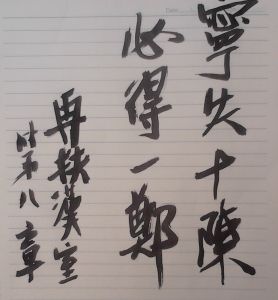 寧失十陳
必得一鄭
再扶漢室
第八章